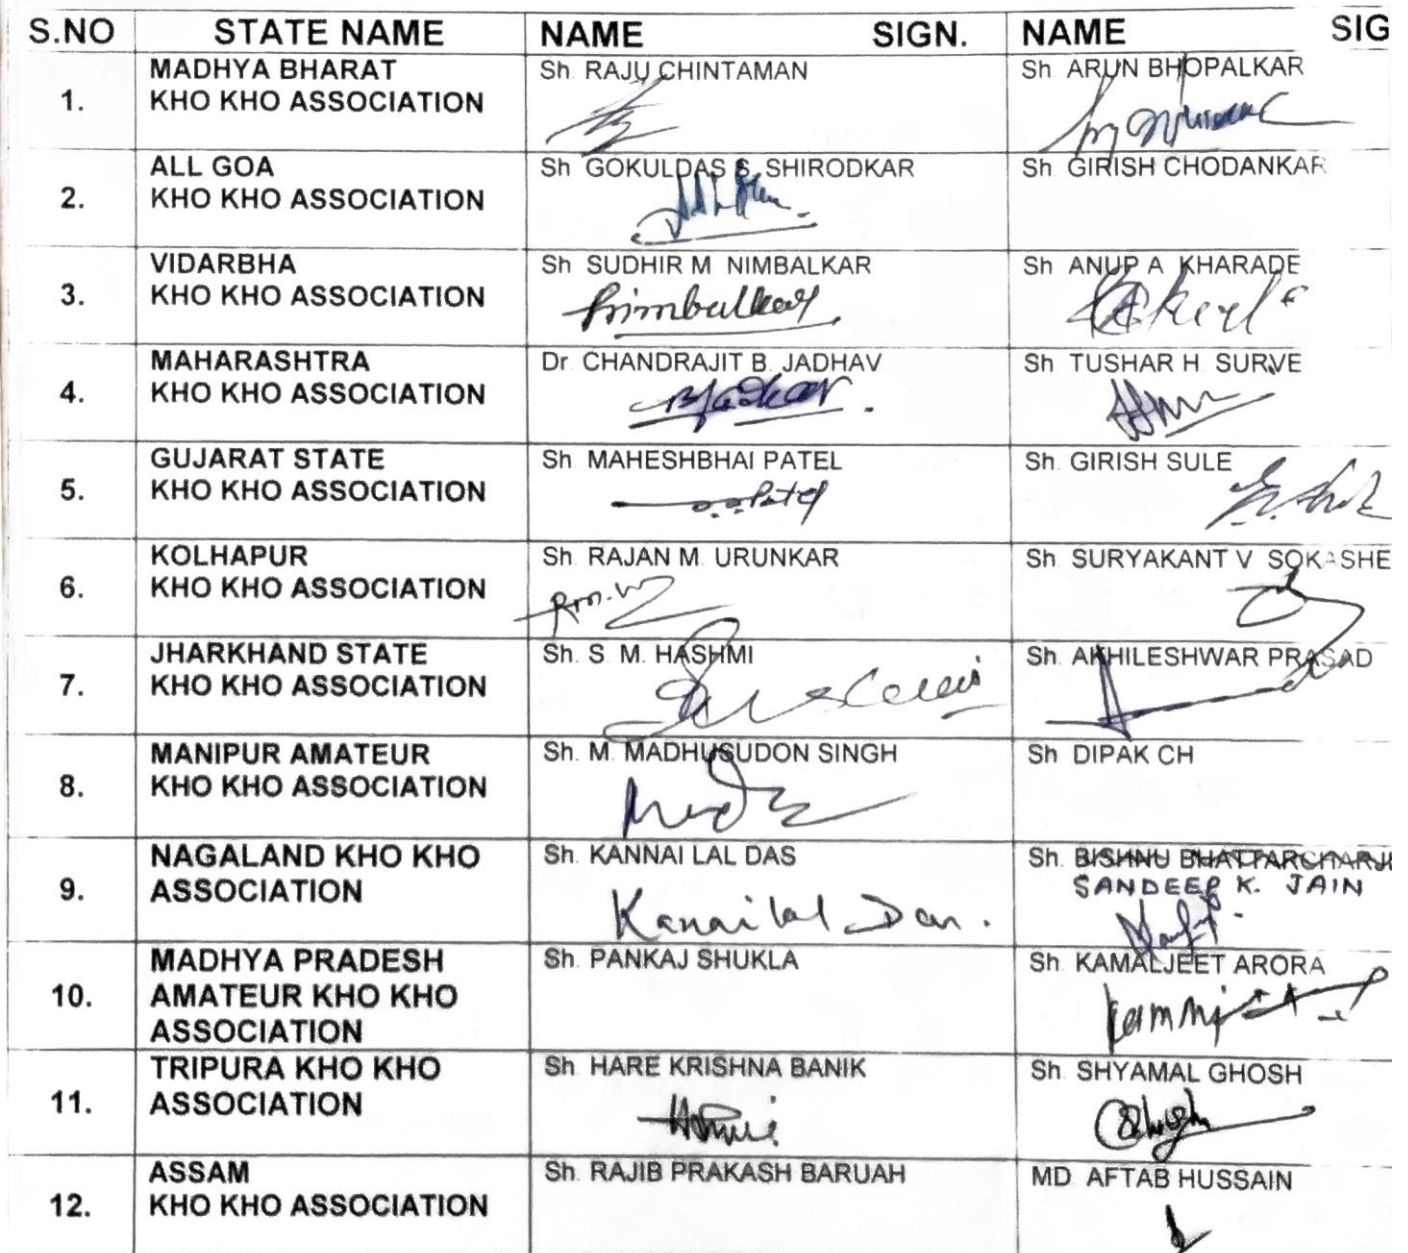 S.NO STATE NAME NAME SIGN. NAME SIG
1. MADHYA BHARAT
KHO KHO ASSOCIATION
Sh. RAJU CHINTAMAN
Sh. ARUN BHOPALKAR
2. ALL GOA
KHO KHO ASSOCIATION
Sh GOKULDAS S. SHIRODKAR
Sh. GIRISH CHODANKAR
3. VIDARBHA
KHO KHO ASSOCIATION
Sh SUDHIR M NIMBALKAR
Nimbalkar
Sh ANUP A KHARADE
4. MAHARASHTRA
KHO KHO ASSOCIATION
Dr. CHANDRAJIT B. JADHAV
BJadhav
Sh TUSHAR H SURVE
5. GUJARAT STATE
KHO KHO ASSOCIATION
Sh. MAHESHBHAI PATEL
Patel
Sh. GIRISH SULE
6. KOLHAPUR
KHO KHO ASSOCIATION
Sh. RAJAN M. URUNKAR
Sh. SURYAKANT V SOKASHE
7. JHARKHAND STATE
KHO KHO ASSOCIATION
Sh. S. M. HASHMI
Sh. AKHILESHWAR PRASAD
8. MANIPUR AMATEUR
KHO KHO ASSOCIATION
Sh. M. MADHUSUDON SINGH
Sh DIPAK CH
9. NAGALAND KHO KHO
ASSOCIATION
Sh. KANNAI LAL DAS
Kanailal Das.
Sh. BISHNU BHATTARCHARJE
SANDEEP K. JAIN
10. MADHYA PRADESH
AMATEUR KHO KHO
ASSOCIATION
Sh. PANKAJ SHUKLA
Sh. KAMALJEET ARORA
11. TRIPURA KHO KHO
ASSOCIATION
Sh. HARE KRISHNA BANIK
Sh. SHYAMAL GHOSH
12. ASSAM
KHO KHO ASSOCIATION
Sh. RAJIB PRAKASH BARUAH
MD. AFTAB HUSSAIN